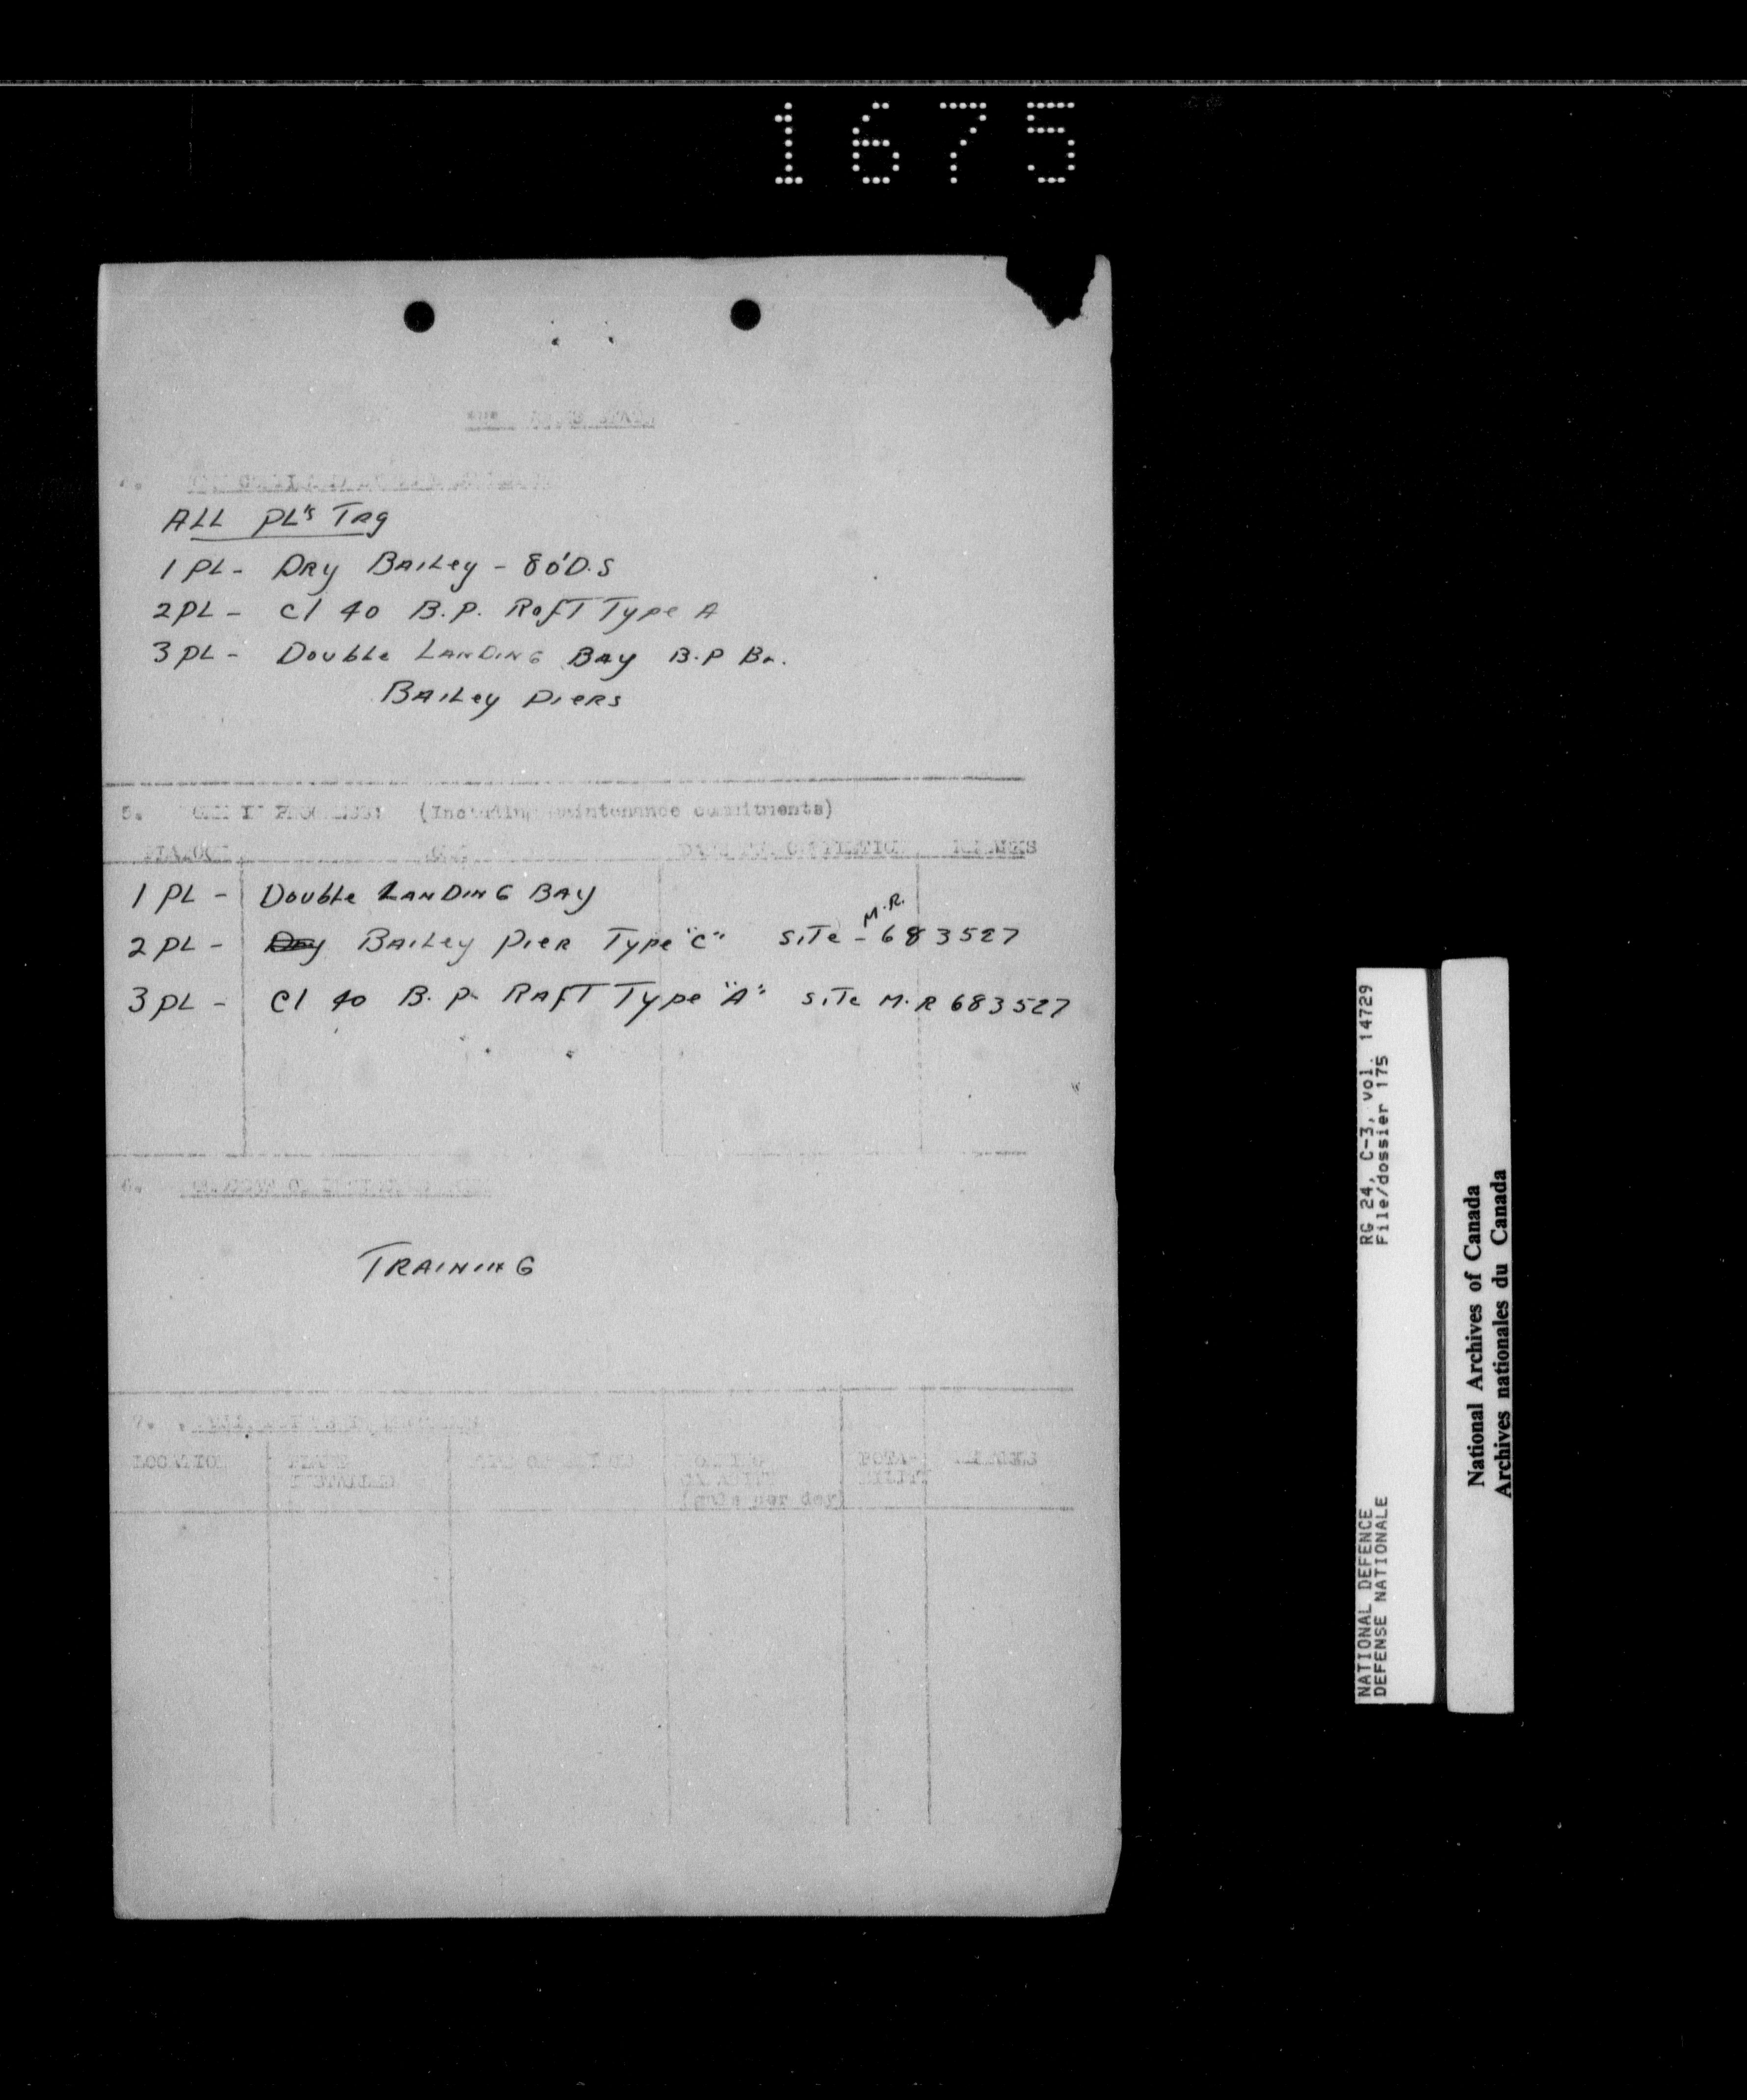 1675
ALL PL's Trg
1 PL - Dry Bailey - 80' D.S
2 PL - Cl 40 B.P. Raft Type A
3 PL - Double Landing Bay B.P Br.
Bailey Piers
5. (Including maintenance commitments)
PLATOON REMARKS
1 PL - Double Landing Bay
2 PL - Dry Bailey Pier Type "C" Site - M.R. 683527
3 PL - Cl 40 B.P. Raft Type "A" Site M.R 683527
6.
TRAINING
7.
LOCATION POTA- REMARKS
BILITY
(gals per day)
RG 24, C-3, vol. 14729
File/dossier 175
NATIONAL DEFENCE
DEFENSE NATIONALE
National Archives of Canada
Archives nationales du Canada